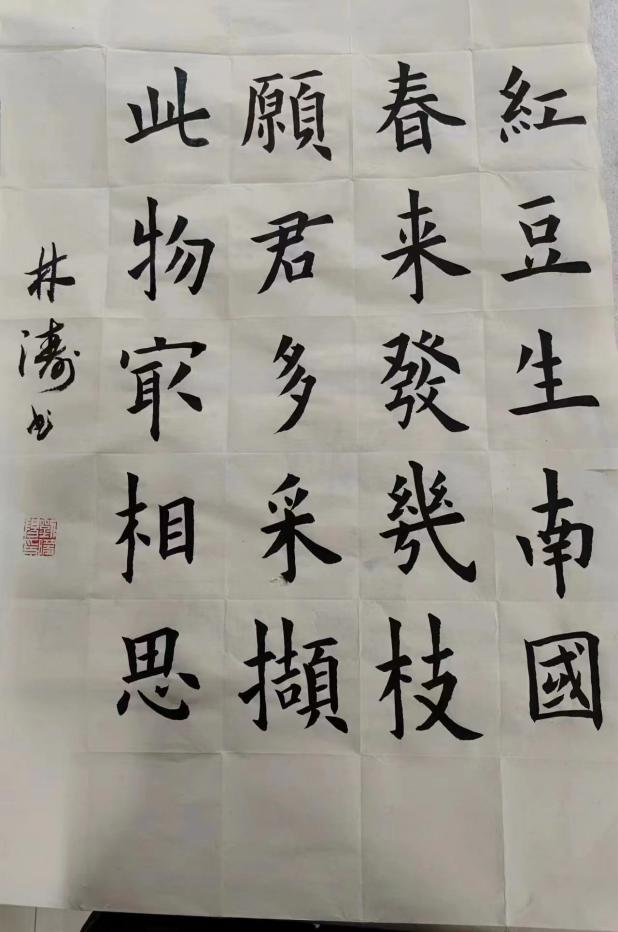 紅豆生南國
春来發幾枝
願君多采擷
此物冣相思
林濤书